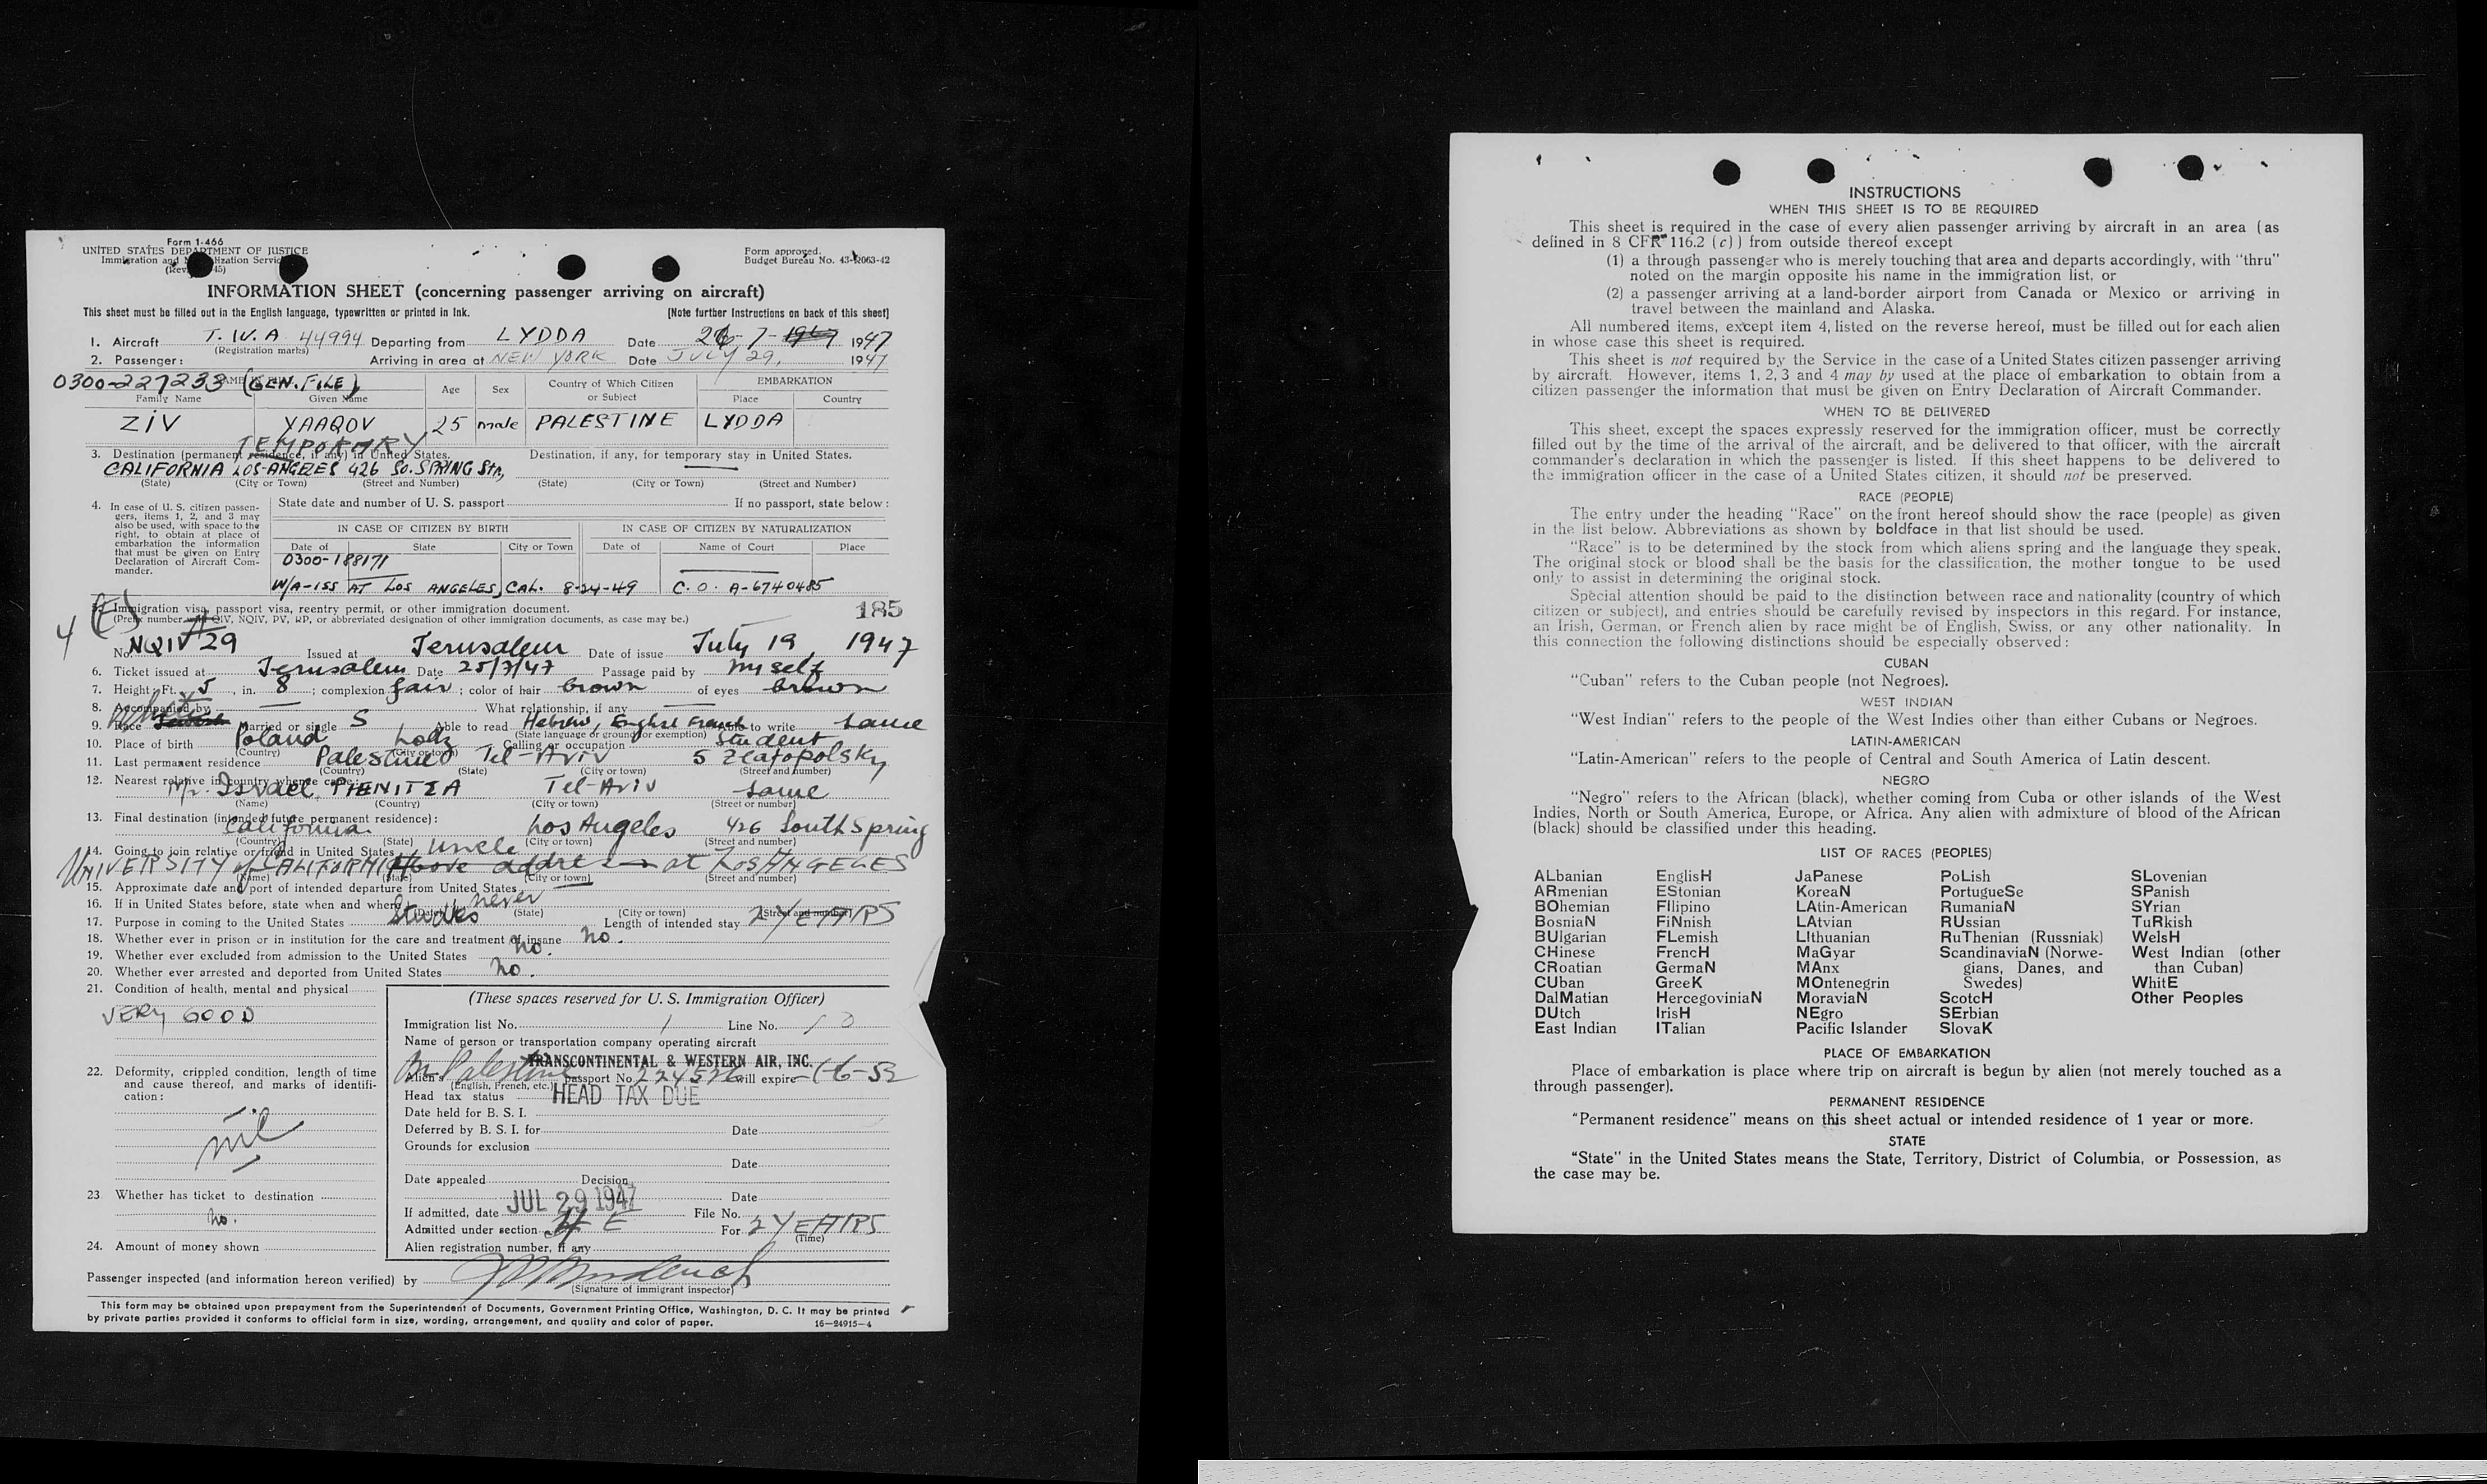 Form 1-466
UNITED STATES DEPARTMENT OF JUSTICE
Immigration and Naturalization Service
Form approved.
Budget Bureau No. 43-R063-42
INFORMATION SHEET (concerning passenger arriving on aircraft)
This sheet must be filled out in the English language, typewritten or printed in ink. [Note further Instructions on back of this sheet]
1. Aircraft T.W.A 44994 Departing from LYDDA Date 26-7-1947 1947
(Registration marks)
2. Passenger: Arriving in area at NEW YORK Date JULY 29, 1947
0300-227233 (GEN. FILE)
Family Name Given Name Age Sex Country of Which Citizen or Subject EMBARKATION Place Country
ZIV YAAQOV 25 male PALESTINE LYDDA
TEMPORARY
3. Destination (permanent residence, if any) in United States. Destination, if any, for temporary stay in United States.
CALIFORNIA LOS-ANGELES 426 So. SPRING Str,
(State) (City or Town) (Street and Number) (State) (City or Town) (Street and Number)
4. In case of U. S. citizen passengers, items 1, 2, and 3 may also be used, with space to the right, to obtain at place of embarkation the information that must be given on Entry Declaration of Aircraft Commander.
State date and number of U. S. passport If no passport, state below:
IN CASE OF CITIZEN BY BIRTH IN CASE OF CITIZEN BY NATURALIZATION
Date of State City or Town Date of Name of Court Place
0300-188171
W/A-ISS AT LOS ANGELES, CAL. 8-24-49 C.O. A-6740485
5. Immigration visa, passport visa, reentry permit, or other immigration document. 185
(Prefix number with QIV, NQIV, PV, RP, or abbreviated designation of other immigration documents, as case may be.)
4 (E)
No. NQIV 29 Issued at Jerusalem Date of issue July 19, 1947
6. Ticket issued at Jerusalem Date 25/7/47 Passage paid by myself
7. Height: Ft. 5, in. 8; complexion fair; color of hair brown of eyes brown
8. Accompanied by — What relationship, if any —
9. Race White Married or single S Able to read Hebrew, English French to write same
(State language or ground for exemption)
10. Place of birth Poland Lodz Calling or occupation Student
(Country) (City or town)
11. Last permanent residence Palestine Tel-Aviv 5 Zlatopolsky
(Country) (State) (City or town) (Street and number)
12. Nearest relative in country whence came:
Mr. Israel PIENITZA Tel-Aviv same
(Name) (Country) (City or town) (Street or number)
13. Final destination (intended future permanent residence):
California. Los Angeles 426 South Spring
(Country) (State) (City or town) (Street and number)
14. Going to join relative or friend in United States Uncle
UNIVERSITY of CALIFORNIA Above address at LOS ANGELES
(Name) (State) (City or town) (Street and number)
15. Approximate date and port of intended departure from United States
16. If in United States before, state when and where never
(Date) (State) (City or town) (Street and number)
17. Purpose in coming to the United States Studies Length of intended stay 2 YEARS
18. Whether ever in prison or in institution for the care and treatment of insane no.
19. Whether ever excluded from admission to the United States no.
20. Whether ever arrested and deported from United States no.
21. Condition of health, mental and physical
VERY GOOD
22. Deformity, crippled condition, length of time and cause thereof, and marks of identification:
nil
23 Whether has ticket to destination
no.
24. Amount of money shown
(These spaces reserved for U. S. Immigration Officer)
Immigration list No. 1 Line No. 10
Name of person or transportation company operating aircraft
TRANSCONTINENTAL & WESTERN AIR, INC.
Br Palestine
Alien's passport No. 224526 will expire 1-6-52
(English, French, etc.)
Head tax status HEAD TAX DUE
Date held for B. S. I.
Deferred by B. S. I. for Date
Grounds for exclusion
Date
Date appealed Decision
Date
If admitted, date JUL 29 1947 File No.
Admitted under section 4 E For 2 YEARS
(Time)
Alien registration number, if any
Passenger inspected (and information hereon verified) by
(Signature of immigrant inspector)
This form may be obtained upon prepayment from the Superintendent of Documents, Government Printing Office, Washington, D. C. It may be printed
by private parties provided it conforms to official form in size, wording, arrangement, and quality and color of paper. 16—24915-4
INSTRUCTIONS
WHEN THIS SHEET IS TO BE REQUIRED
This sheet is required in the case of every alien passenger arriving by aircraft in an area (as
defined in 8 CFR 116.2 (c)) from outside thereof except
(1) a through passenger who is merely touching that area and departs accordingly, with "thru"
noted on the margin opposite his name in the immigration list, or
(2) a passenger arriving at a land-border airport from Canada or Mexico or arriving in
travel between the mainland and Alaska.
All numbered items, except item 4, listed on the reverse hereof, must be filled out for each alien
in whose case this sheet is required.
This sheet is not required by the Service in the case of a United States citizen passenger arriving
by aircraft. However, items 1, 2, 3 and 4 may by used at the place of embarkation to obtain from a
citizen passenger the information that must be given on Entry Declaration of Aircraft Commander.
WHEN TO BE DELIVERED
This sheet, except the spaces expressly reserved for the immigration officer, must be correctly
filled out by the time of the arrival of the aircraft, and be delivered to that officer, with the aircraft
commander's declaration in which the passenger is listed. If this sheet happens to be delivered to
the immigration officer in the case of a United States citizen, it should not be preserved.
RACE (PEOPLE)
The entry under the heading "Race" on the front hereof should show the race (people) as given
in the list below. Abbreviations as shown by boldface in that list should be used.
"Race" is to be determined by the stock from which aliens spring and the language they speak.
The original stock or blood shall be the basis for the classification, the mother tongue to be used
only to assist in determining the original stock.
Special attention should be paid to the distinction between race and nationality (country of which
citizen or subject), and entries should be carefully revised by inspectors in this regard. For instance,
an Irish, German, or French alien by race might be of English, Swiss, or any other nationality. In
this connection the following distinctions should be especially observed:
CUBAN
"Cuban" refers to the Cuban people (not Negroes).
WEST INDIAN
"West Indian" refers to the people of the West Indies other than either Cubans or Negroes.
LATIN-AMERICAN
"Latin-American" refers to the people of Central and South America of Latin descent.
NEGRO
"Negro" refers to the African (black), whether coming from Cuba or other islands of the West
Indies, North or South America, Europe, or Africa. Any alien with admixture of blood of the African
(black) should be classified under this heading.
LIST OF RACES (PEOPLES)
ALbanian EnglisH JaPanese PoLish SLovenian
ARmenian EStonian KoreaN PortugueSe SPanish
BOhemian FIlipino LAtin-American RumaniaN SYrian
BosniaN FiNnish LAtvian RUssian TuRkish
BUlgarian FLemish LIthuanian RuThenian (Russniak) WelsH
CHinese FrencH MaGyar ScandinaviaN (Norwe- West Indian (other
CRoatian GermaN MAnx gians, Danes, and than Cuban)
CUban GreeK MOntenegrin Swedes) WhitE
DalMatian HercegoviniaN MoraviaN ScotcH Other Peoples
DUtch IrisH NEgro SErbian
East Indian ITalian Pacific Islander SlovaK
PLACE OF EMBARKATION
Place of embarkation is place where trip on aircraft is begun by alien (not merely touched as a
through passenger).
PERMANENT RESIDENCE
"Permanent residence" means on this sheet actual or intended residence of 1 year or more.
STATE
"State" in the United States means the State, Territory, District of Columbia, or Possession, as
the case may be.